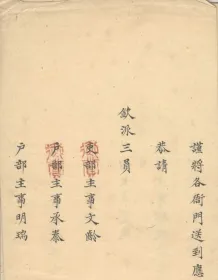 謹將各衙門送到應
恭請
欽派三員
吏部主事文齡
戶部主事承泰
戶部主事明瑞